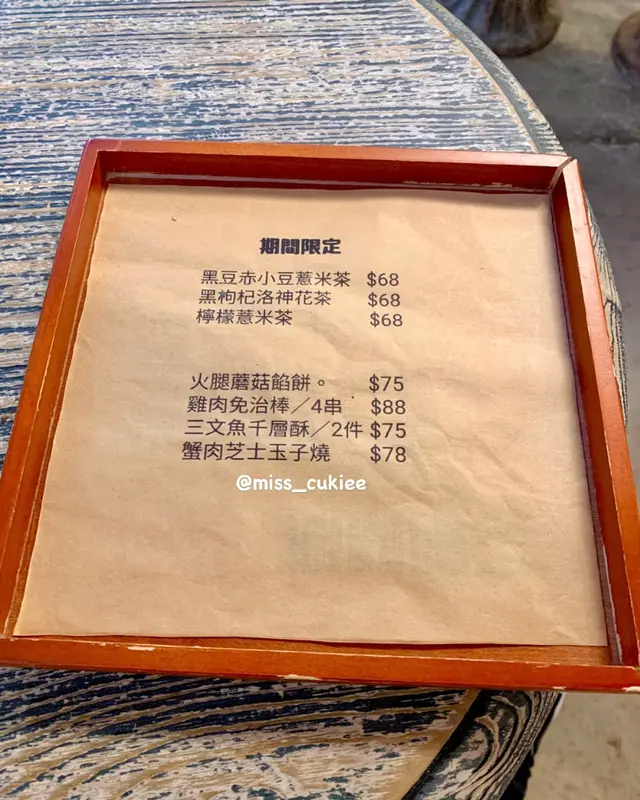 期間限定
黑豆赤小豆薏米茶 $68
黑枸杞洛神花茶 $68
檸檬薏米茶 $68
火腿蘑菇餡餅。 $75
雞肉免治棒／4串 $88
三文魚千層酥／2件 $75
蟹肉芝士玉子燒 $78
@miss_cukiee